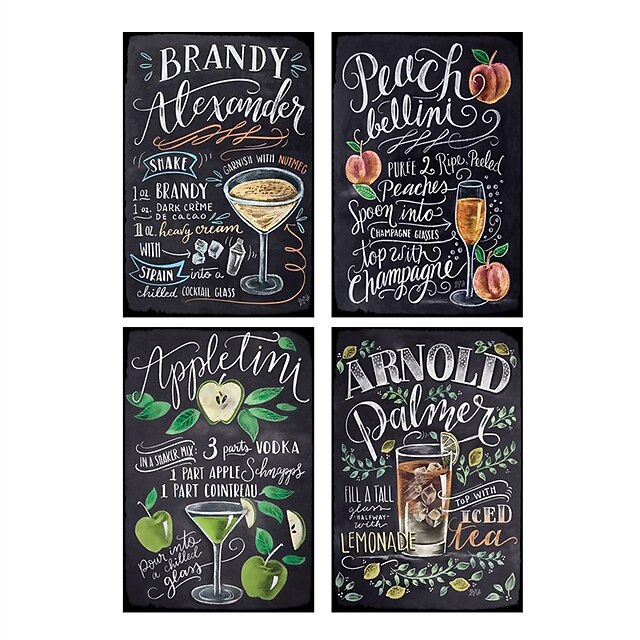 BRANDY
Alexander
SHAKE
GARNISH WITH NUTMEG
1 oz. BRANDY
1 oz. DARK CRÈME
DE CACAO
heavy cream
WITH
STRAIN into a
chilled COCKTAIL GLASS
Peach
bellini
PURÉE 2 Ripe, Peeled
Peaches
Spoon into
CHAMPAGNE GLASSES
top with
Champagne
Appletini
IN A SHAKER MIX: 3 parts VODKA
1 PART APPLE Schnapps
1 PART COINTREAU
Pour into
a chilled
glass
ARNOLD
Palmer
FILL A TALL
glass
-HALFWAY-
with
LEMONADE
TOP WITH
ICED
tea